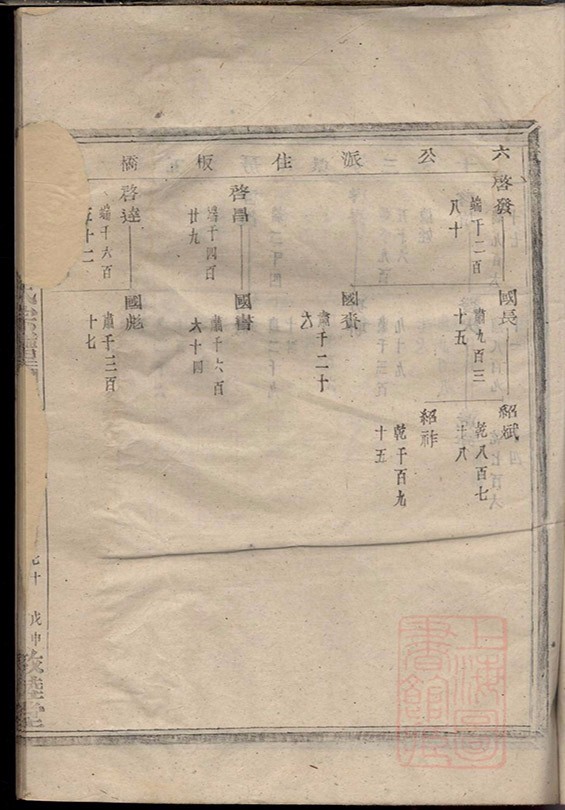 六公派住板橋
啓發
端千二百
八十
國長
肅九百三
十五
紹斌
乾八百七
十八
紹祚
乾千百九
十五
國賚
肅千二十
六
啓昌
端千四百
廿九
國書
肅千六百
六十四
啓達
端千六百
五十二
國彪
肅千三百
十七
七十
戊申
敦睦堂
上海圖書館藏